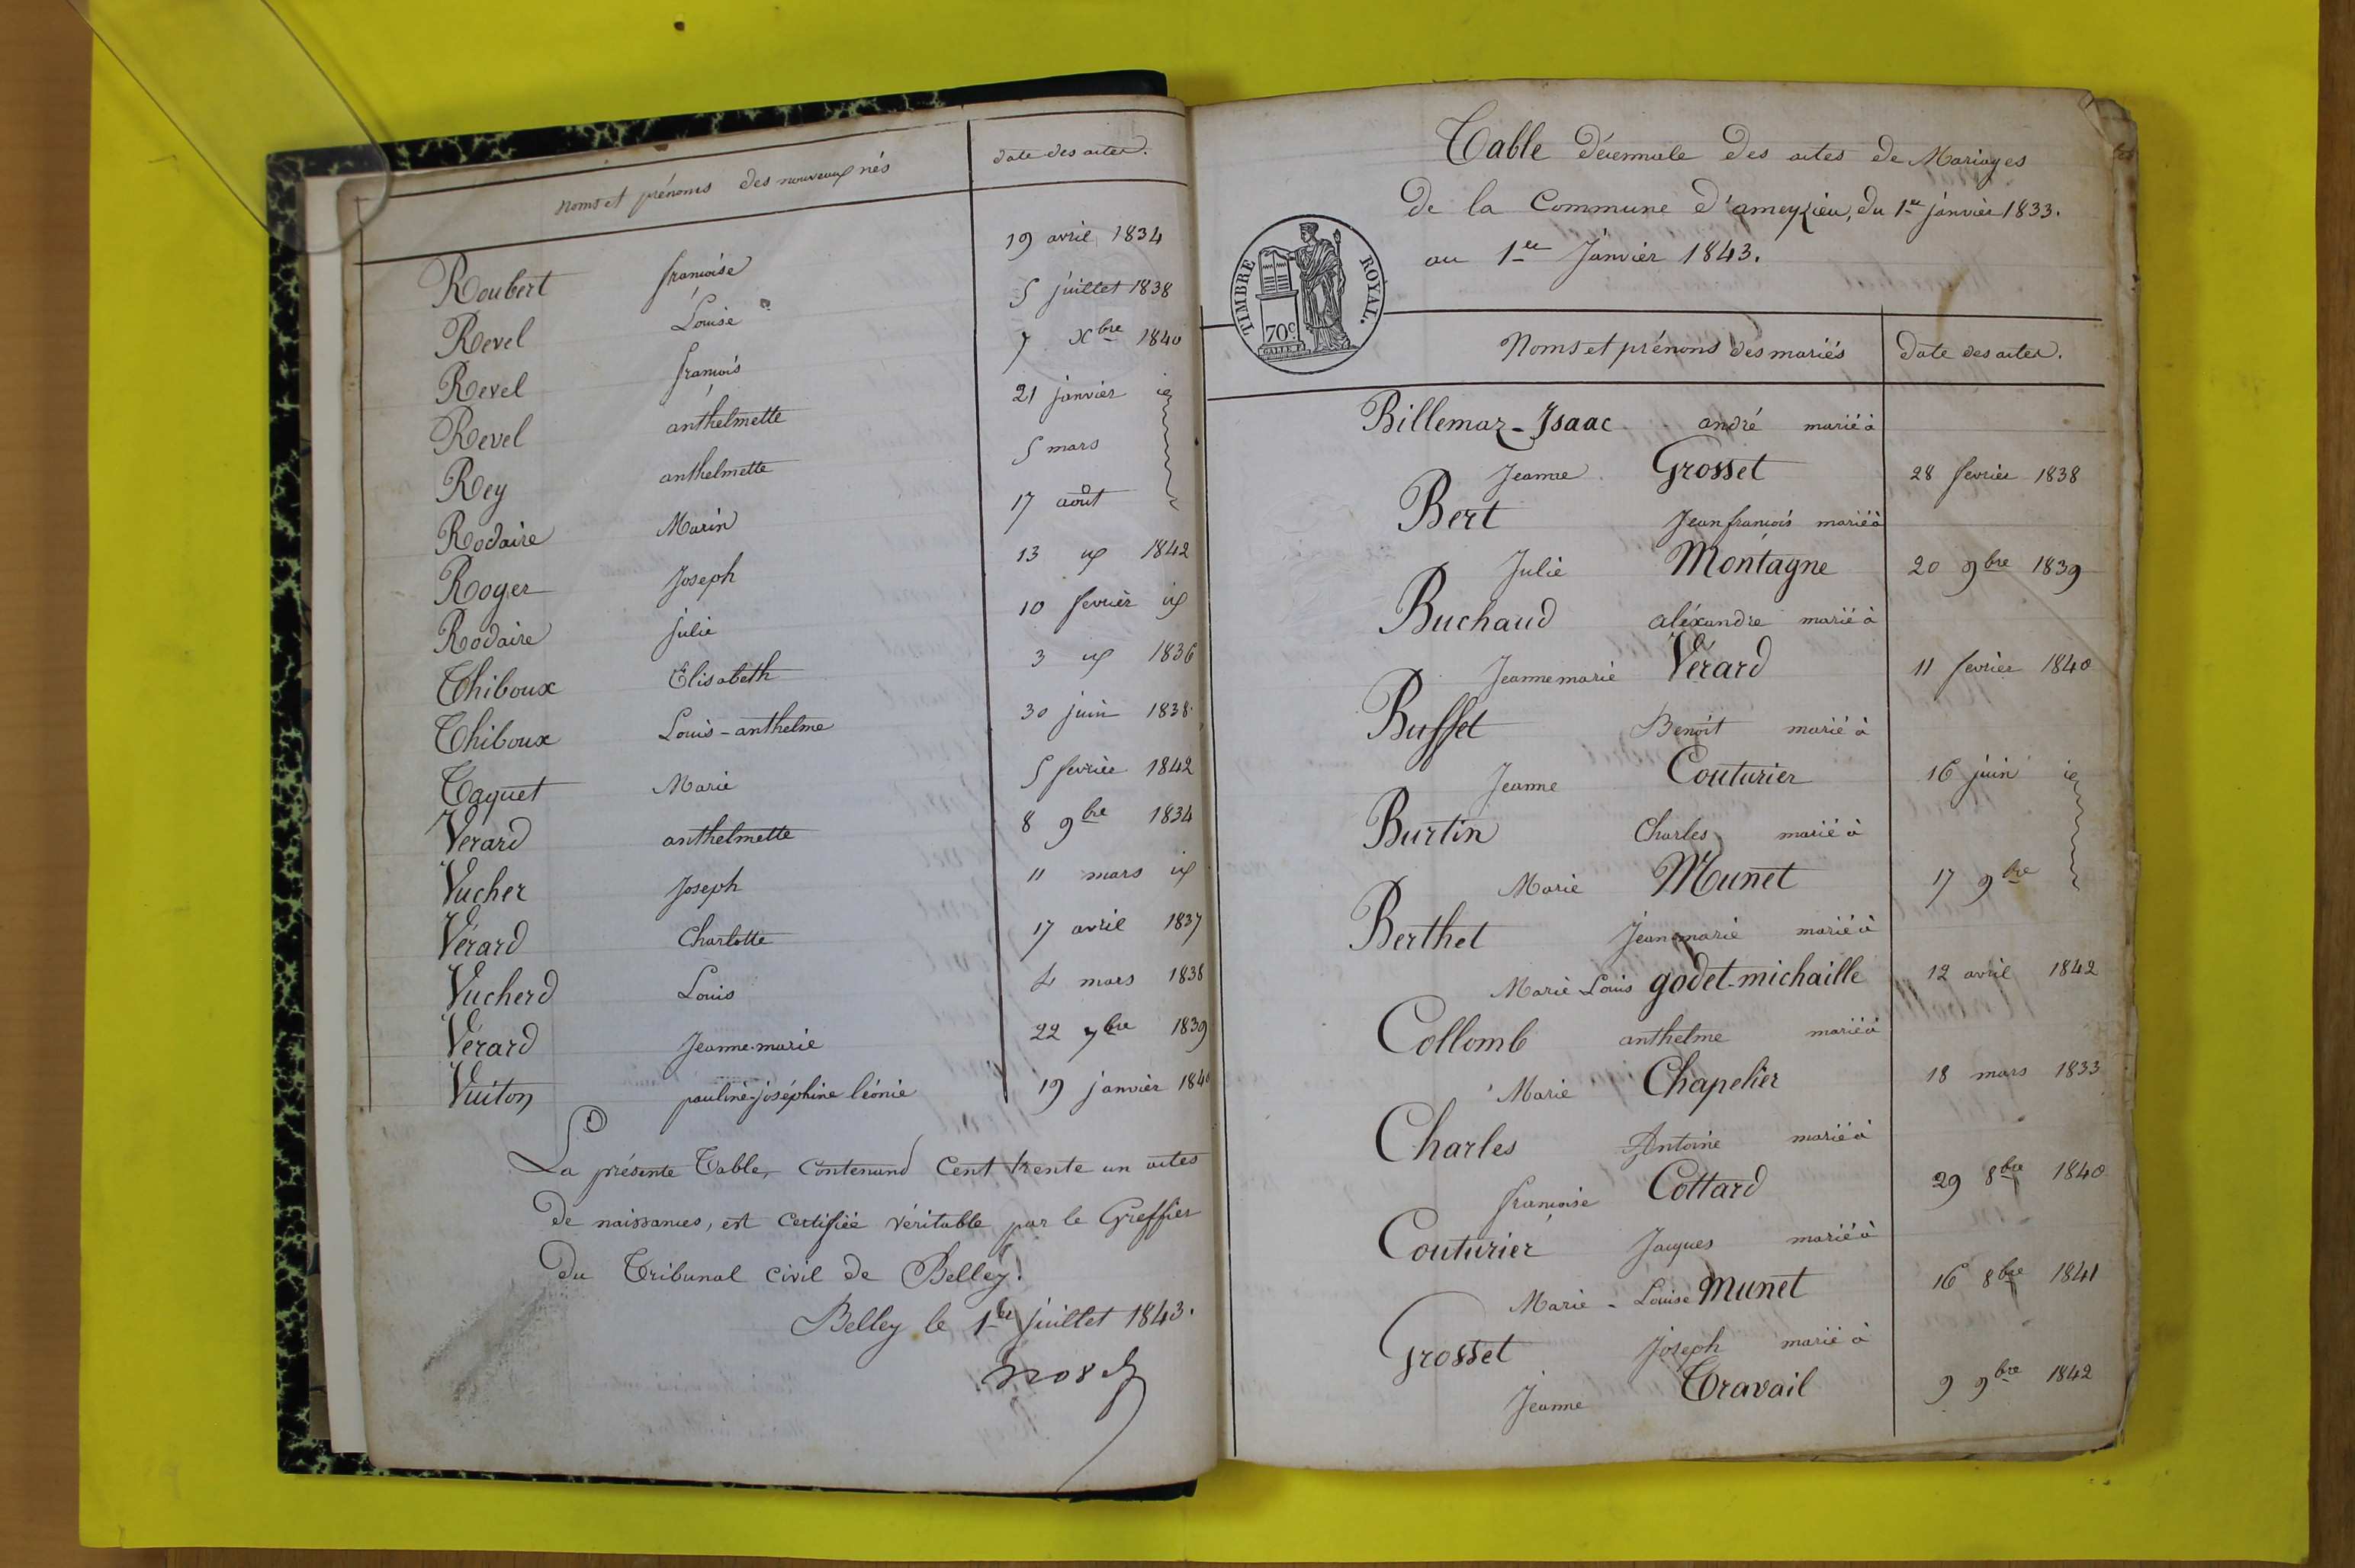 noms et prénoms des nouveaux nés date des actes.
Roubert françoise 19 avril 1834
Revel Louise 5 juillet 1838
Revel françois 7 xbre 1840
Revel anthelmette 21 janvier
Rey anthelmette 5 mars
Rodaire Marin 17 août
Roger Joseph 13 1842
Rodaire julie 10 fevrier
Thiboux Elisabeth 3 1836
Thiboux Louis-anthelme 30 juin 1838
Taquet Marie 5 fevrier 1842
Verard anthelmette 8 9bre 1834
Vucher Joseph 11 mars
Vérard Charlotte 17 avril 1837
Vucherd Louis 4 mars 1838
Vérard Jeanne-marie 22 7bre 1839
Vuiton pauline-joséphine léonie 19 janvier
La présente Table, Contenand Cent trente un actes
de naissances, est Certifiée véritable par le Greffier
du Tribunal civil de Belley.
Belley le 1er juillet 1843.
Table décennale des actes de Mariages
de la Commune d'ameyzieu, du 1er janvier 1833.
au 1er Janvier 1843.
TIMBRE ROYAL.
70c
Noms et prénoms des mariés date des actes.
Billemaz-Isaac andré marié à
Jeanne Grosset 28 fevrier 1838
Bert Jean françois marié à
Julie Montagne 20 9bre 1839
Buchaud aléxandre marié à
Jeanne marie Vérard 11 fevrier 1840
Buffet Benoit marié à
Jeanne Couturier 16 juin
Burtin Charles marié à
Marie Munet 17 9bre
Berthet jean-marie marié à
Marie Louis godet-michaille 12 avril 1842
Collomb anthelme marié à
Marie Chapelier 18 mars 1833
Charles Antoine marié à
françoise Cottard 29 8bre 1840
Couturier Jacques marié à
Marie-Louise Munet 16 8bre 1841
Grosset joseph marié à
Jeanne Travail 9 9bre 1842